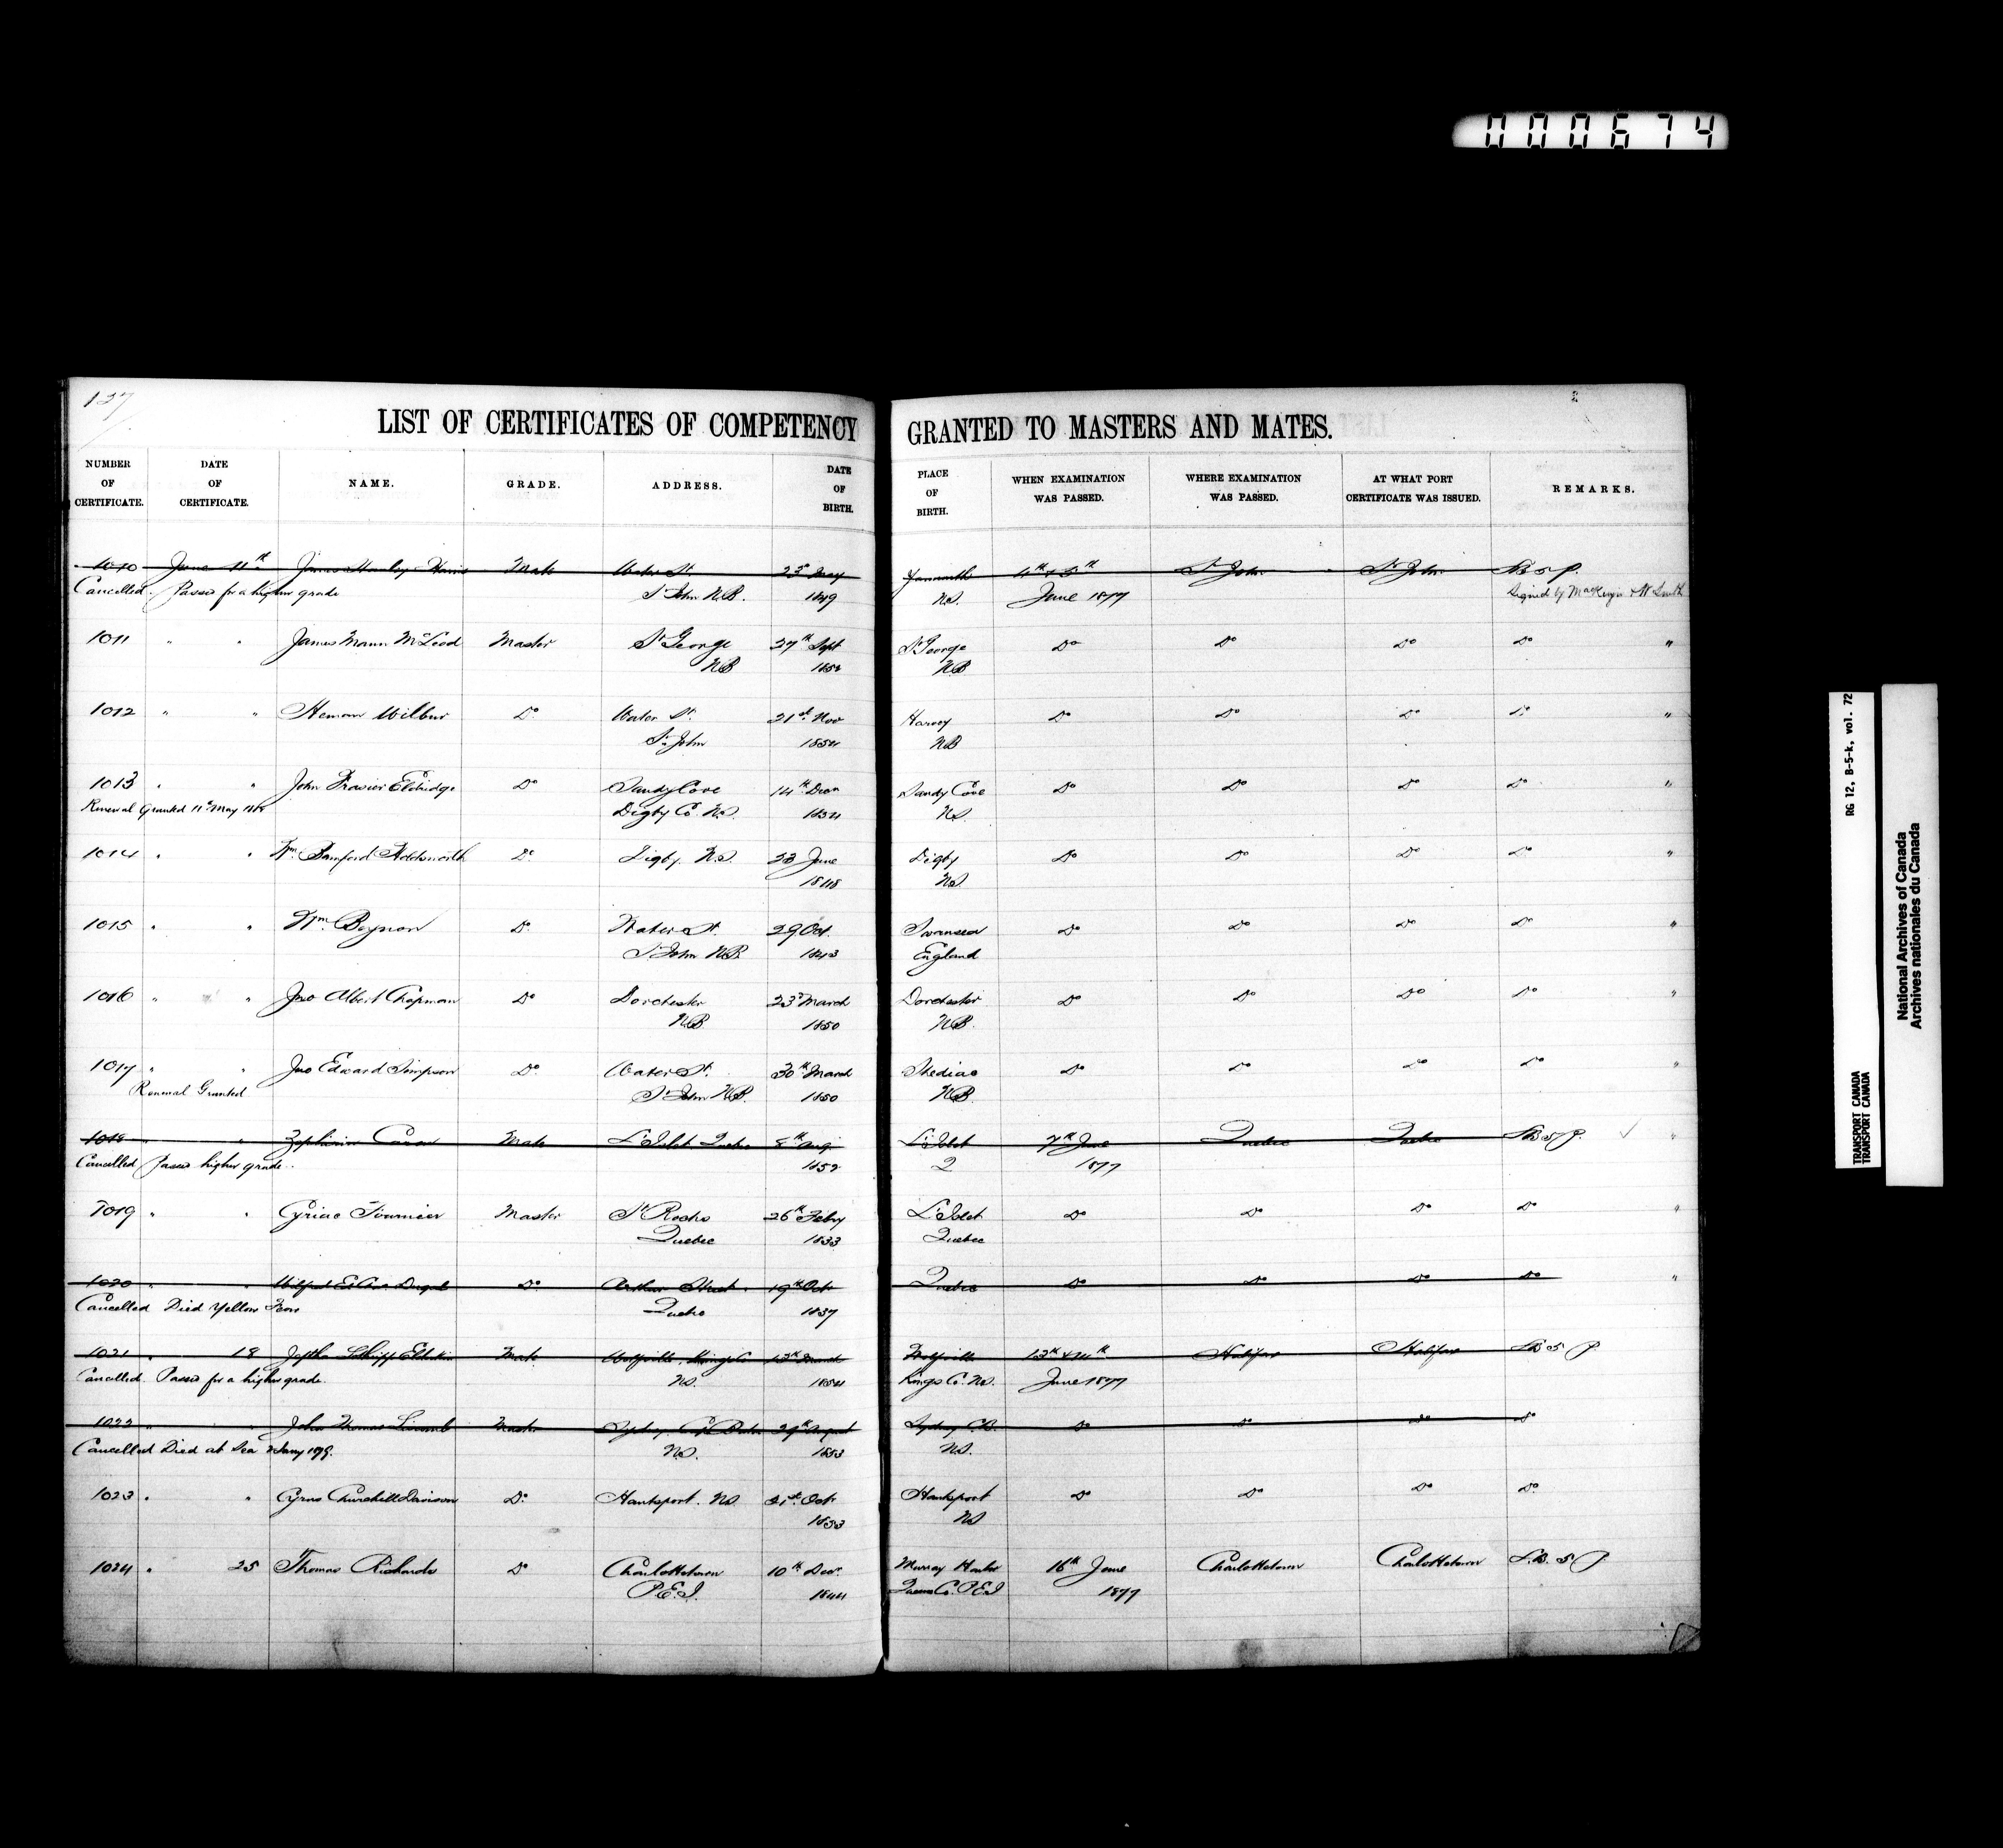 000674
127
2
LIST OF CERTIFICATES OF COMPETENCY GRANTED TO MASTERS AND MATES.
NUMBER OF CERTIFICATE. DATE OF CERTIFICATE. NAME. GRADE. ADDRESS. DATE OF BIRTH. PLACE OF BIRTH. WHEN EXAMINATION WAS PASSED. WHERE EXAMINATION WAS PASSED. AT WHAT PORT CERTIFICATE WAS ISSUED. REMARKS.
1010 June 11th James Harris Mate Water St. 23d May Yarmouth 4th & 5th St John St John
Cancelled. Passed for a higher grade St John N.B. 1849 N.S. June 1877 Signed by
1011 " " James Mann McLeod Master St George 27th Sept St George Do Do Do Do "
NB NB
1012 " " Heman Wilbur Do Water St. 21st Nov Harvey Do Do Do Do "
St John 1854 NB
1013 " " John Frasier Eldridge Do Sandy Cove 14th Decr Sandy Cove Do Do Do Do "
Renewal Granted 11th May Digby Co. N.S. N.S.
1014 " " Wm Do Digby N.S. 23 June Digby Do Do Do Do "
1848 N.S.
1015 " " Wm Beynon Do Water St. 29 Oct. Swansea Do Do Do Do "
St John NB. 1843 England
1016 " " Jno Albert Chapman Do Dorchester 23d March Dorchester Do Do Do Do "
NB 1850 NB.
1017 " " Jno Edward Simpson Do Water St. 30th March Shediac Do Do Do Do "
Renewal Granted St John NB. 1850 NB.
1018 " " Caron Mate L'Islet Quebec 8th Aug L'Islet 7th June Quebec Quebec "
Cancelled Passed higher grade. Q 1877
1019 " " Cyriac Fournier Master St Rochs 26th Feby L'Islet Do Do Do Do "
Quebec 1833 Quebec
1020 " " Wilfred Do Arthur Street 19th Oct Quebec Do Do Do Do "
Cancelled Died Yellow Fever Quebec 1837
1021 " 18 Mate Wolfville, Kings Co 13th March Wolfville 13th & 14th Halifax Halifax
Cancelled. Passed for a higher grade. N.S. 1854 Kings Co. N.S. June 1877
1022 " " John Thomas Master Sydney 29th August Sydney C.B. Do Do Do Do
Cancelled Died at Sea N.S. 1853 N.S.
1023 " " Cyrus Churchill Davison Do Hantsport. NS 21st Oct Hantsport Do Do Do Do
NS
1024 " 25 Thomas Richards Do Charlottetown 10th Decr Murray Harbor 16th June Charlottetown Charlottetown
P.E.I. 1844 Queens Co. P.E.I 1877
RG 12, B-5-k, vol. 72
TRANSPORT CANADA
TRANSPORT CANADA
National Archives of Canada
Archives nationales du Canada